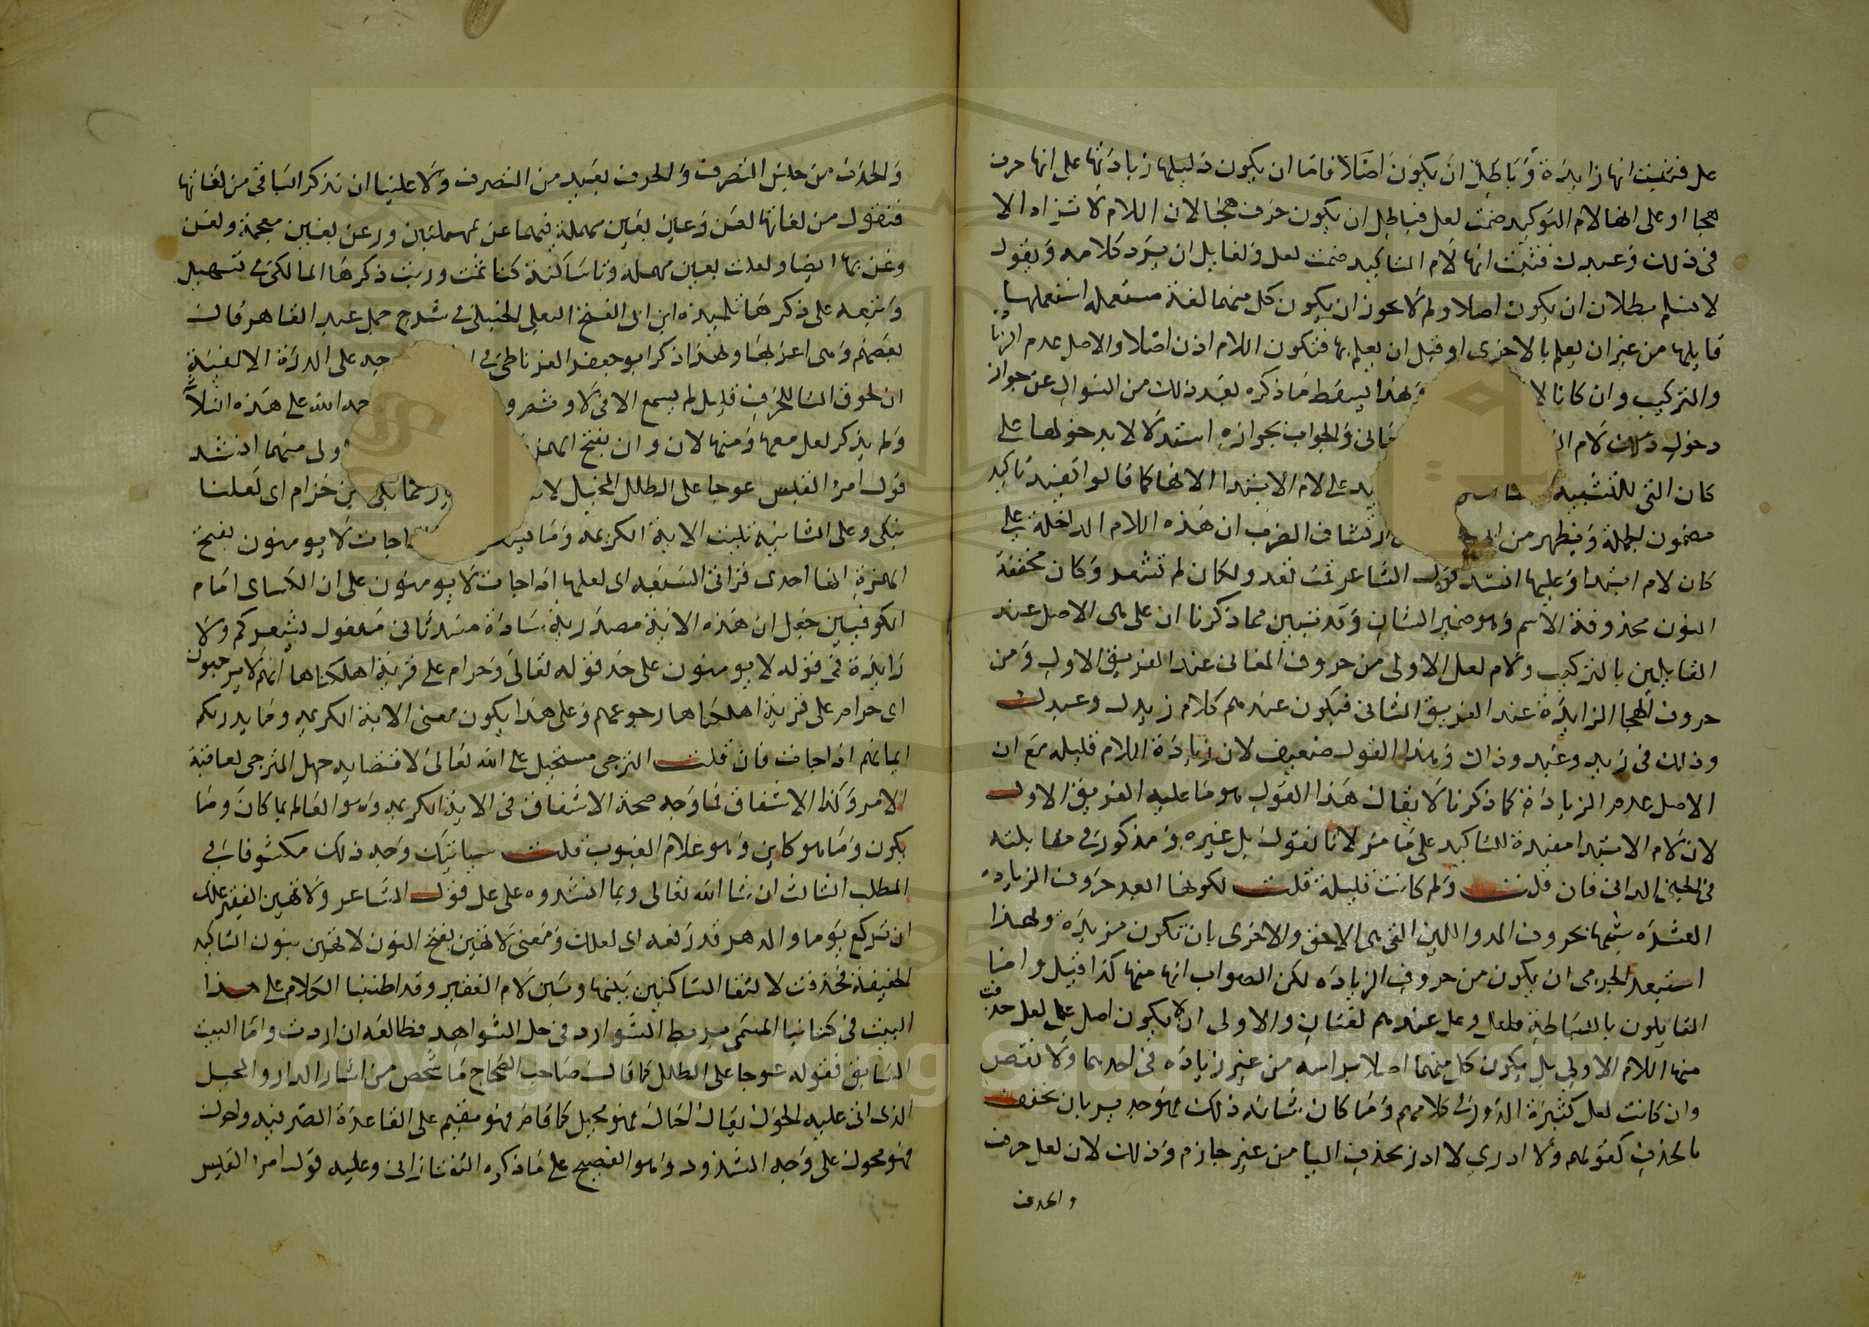 عل فتعين انها زايدة وباطل ان يكون اصلا فاما ان يكون دليلها زيادتها على انها حرف
هجا او على انها لام التوكيد ضمت لعل فباطل ان يكون حرف هجا لان اللام لا تزاد الا
في ذلك وعبدل فثبت انها لام التاكيد ضمت لعل ولقايل ان يرد كلامه ويقول
لا نسلم بطلان ان يكون اصلا ولم لا يجوز ان يكون كل منهما لغة مستعملة استعملها
قايلها من غير ان يعلم بالاخرى او قبل ان يعلم بها فتكون اللام اذن اصلا والاصل عدم
والتركيب وان كانا لا وبهذا يسقط ما ذكره بعد ذلك من السوال عن جواز
دخول تلك لام والجواب بجوازه استدلالا بدخولها على
كان التي للتشبيه على لام الابتدا الا انها كما قالوا تفيد تاكيد
مضمون الجملة ويظهر من ارتشاف الضرب ان هذه اللام الداخلة على
كان لام ابتدا وعليها انشد قول الشاعر ثمت لغد ولكان لم تشهد وكان مخففة
النون محذوفة الاسم وهو ضمير الشان وقد تبين مما ذكرنا ان عل هي الاصل عند
القايلين بالتركيب ولام لعل الاولى من حروف المعاني عند الفريق الاول ومن
حروف الهجا الزايدة عند الفريق الثاني فيكون عندهم كلام زيدل وعبدل
وذلك في زيد وعبد وذاك وهذا القول ضعيف لان زيادة اللام قليلة مع ان
الاصل عدم الزيادة كما ذكرنا لا يقال هذا القول هو ما عليه الفريق الاول
لان لام الابتدا مفيدة للتاكيد على ما مر لانا نقول بل غيره ومذكور في مقابلته
في الجنى الداني فان قلت ولم كانت قليلة قلت لكونها ابعد حروف الزيادة
العشرة شبها بحروف المد واللين التي هي الاحق والاحرى بان تكون مزيدة ولهذا
استبعد الجرمي ان يكون من حروف الزيادة لكن الصواب انها منها كذا قيل واما
القايلون بالبساطة فلعل وعل عندهم لغتان والاولى ان لا يكون اصل عل لعل حذفت
منها اللام الاولى بل يكون كل منهما اصلا براسه من غير زيادة في احدهما ولا نقص
وان كانت لعل كثيرة الدور في كلامهم وما كان شانه ذلك فهو جدير بان يخفف
بالحذف كقولهم ولا ادري لا ادر بحذف اليا من غير جازم وذلك لان لعل حرف
والحذف
والحذف من جنس التصرف والحرف بعيد من التصرف ولا علينا ان نذكر الباقي من لغاتها
فنقول من لغاتها لعن وعن بعين مهملة فيهما عن مهملتين ورعن بغين معجمة ولغن
وغن بها ايضا ولعلت بعين مهملة وتا ساكنة كتا ثمت وربت ذكرها ابن مالك في تسهيل
واتبعه على ذكرها تلميذه ابن ابي الفتح البعلي الحنبلي في شرح جمل عبد القاهر قال
بعضهم وهي اغربها ولهذا ذكر ابو جعفر الغرناطي في على الدرة الالفية
ان لحوق التا للحرف قليل لم يسمع الا في لات وثمت ورب الله على هذه الثلاثة
ولم يذكر لعل معها ومنها لان وان بفتح الهمزة ولى منهما انشد
قول امرؤ القيس عوجا على الطلل المحيل لا بن خزام اي لعلنا
نبكي وعلى الثانية تليت الاية الكريمة وما يشعركم جات لا يومنون بفتح
الهمزة انها احدى قراتي السبعة اي لعلها اذا جات لا يومنون على ان الكساي امام
الكوفيين جعل ان هذه الاية مصدرية سادة مسد ثاني مفعول يشعركم ولا
زايدة في قوله لا يومنون على حد قوله تعالى وحرام على قرية اهلكناها انهم لا يرجعون
اي حرام على قرية اهلكناها رجوعهم وعلى هذا يكون معنى الاية الكريمة وما يدريكم
ايمانهم اذا جات فان قلت الترجي مستحيل على الله تعالى لاقتضايه جهل المترجي لعاقبة
الامر وكذا الاشفاق فما وجه صحة الاشفاق في الاية الكريمة وهو العالم بما كان وما
يكون وما هو كاين وهو علام الغيوب قلت سياتيك وجه ذلك مكشوفا في
المطلب الثالث ان شا الله تعالى ومما انشدوه على عل قول الشاعر ولا تهين الفقير علك
ان تركع يوما والدهر قد رفعه اي لعلك ومعنى لا تهين بفتح النون لا تهين بنون التاكيد
الخفيفة فحذفت لالتقا الساكنين بينها وبين لام الفقير وقد اطنبنا الكلام على هذا
البيت في كتابنا المسمى بربط الشوارد في حل الشواهد فطالعه ان اردت واما البيت
السابق فقوله عوجا على الطلل كما قال صاحب الصحاح ما شخص من اثار الدار والمحيل
الذى اتى عليه الحول يقال احال فهو محيل كما قام فهو مقيم على القاعدة الصرفية واحول
فهو محول على وجه الشذوذ وهو الفصيح على ما ذكره التفتازاني وعليه قول امرؤ القيس